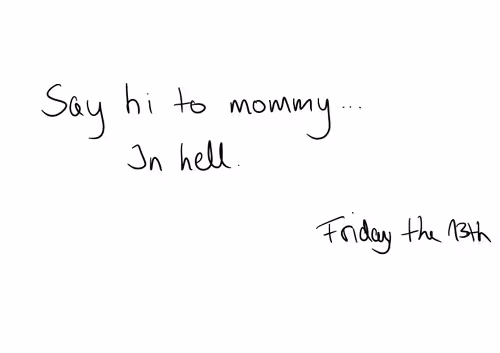 Say hi to mommy...
In hell.
Friday the 13th